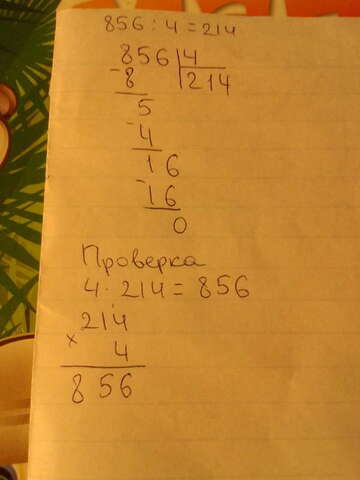 856 : 4 = 214
856 4
- 8 214
5
- 4
16
- 16
0
Проверка
4 · 214 = 856
214
× 4
856